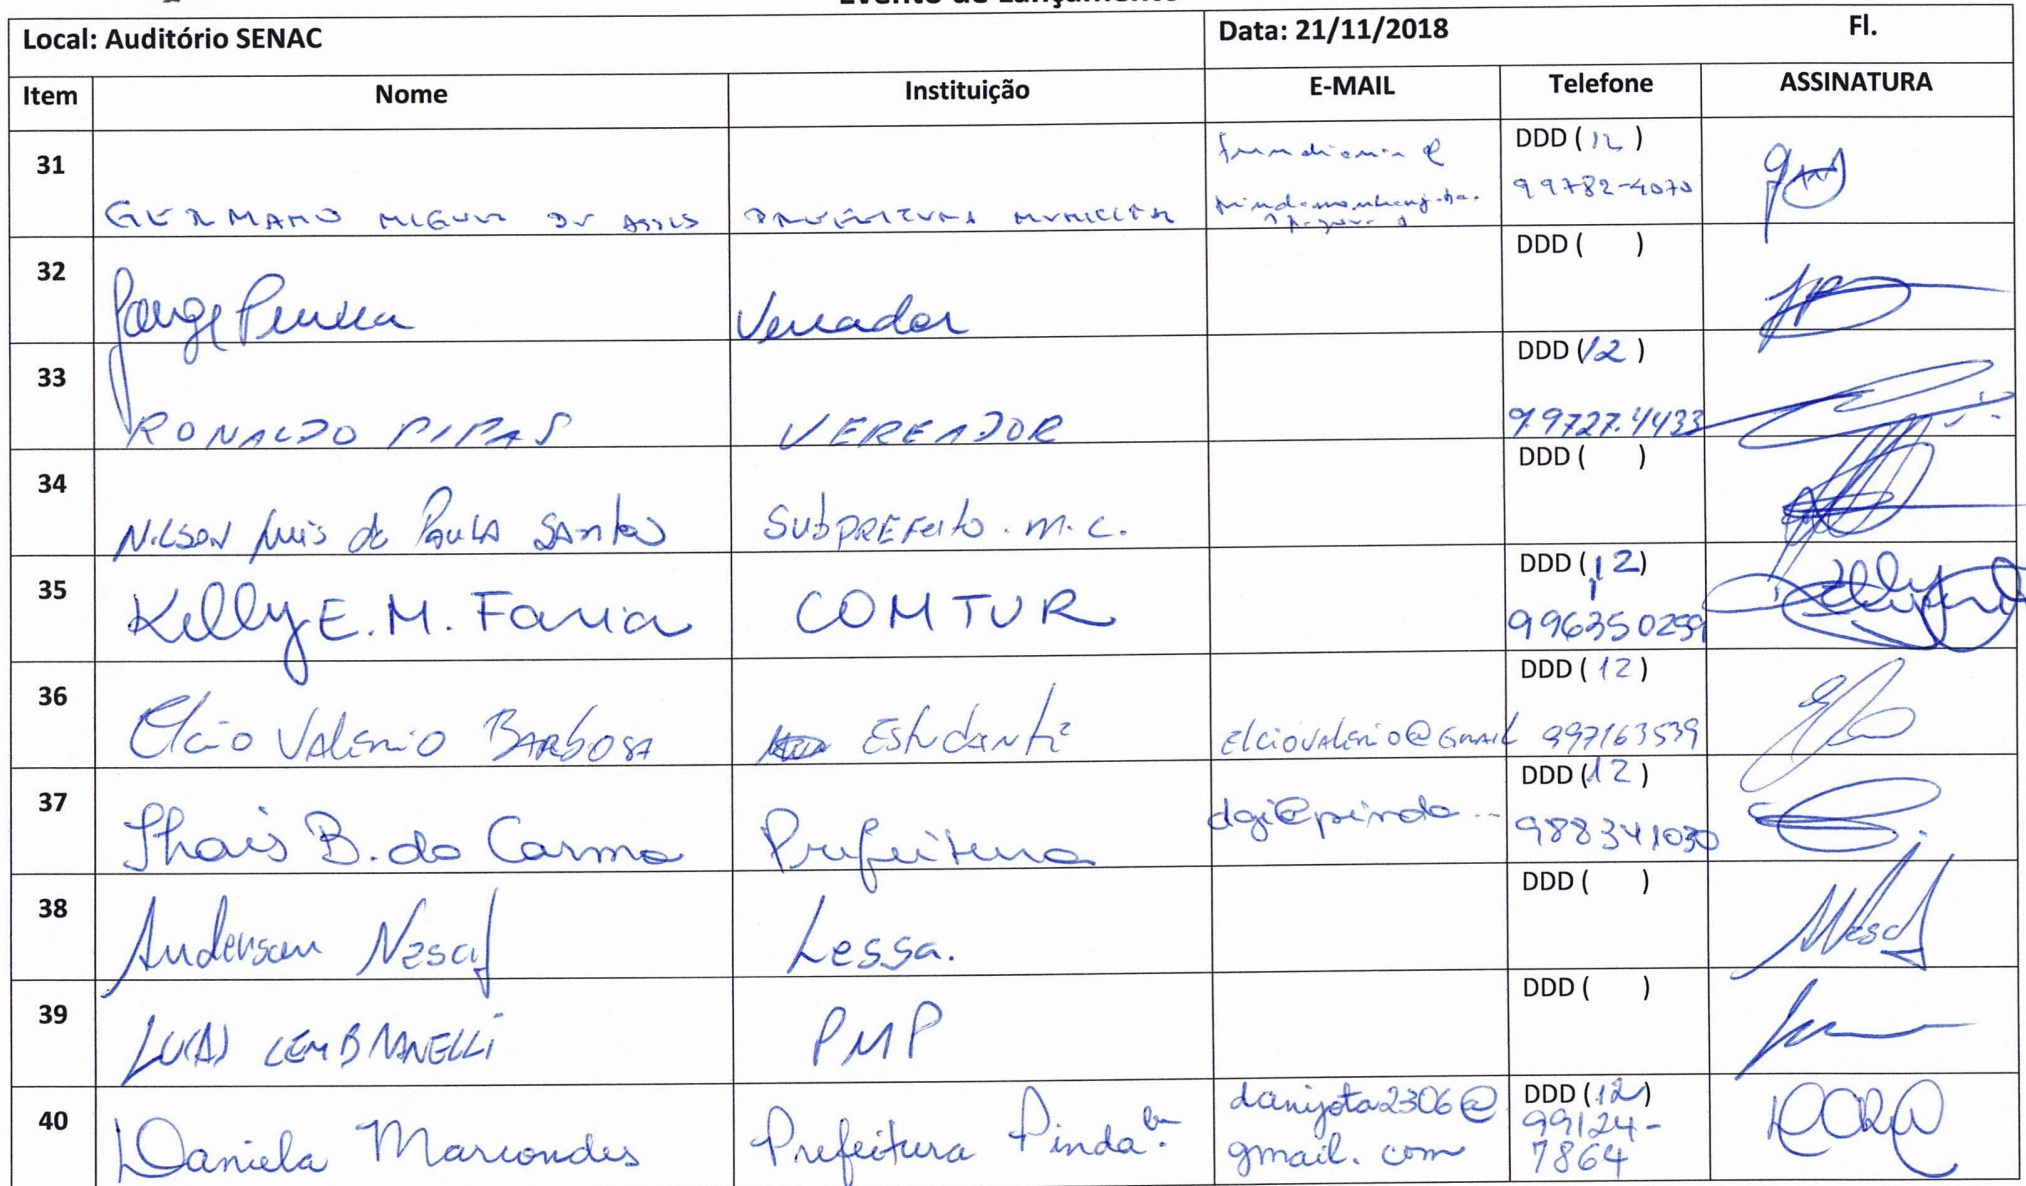 Evento de Lançamento
Local: Auditório SENAC Data: 21/11/2018 Fl.
Item Nome Instituição E-MAIL Telefone ASSINATURA
31 GERMANO MIGUEL DE ASSIS PREFEITURA MUNICIPAL DDD (12) 99782-4070
32 Jorge Pereira Vereador DDD ( )
33 RONALDO PIPAS VEREADOR DDD (12) 99727.4433
34 NILSON Luis de PAULA SANTOS SUBPREFEITO. M.C. DDD ( )
35 Kelly E. M. Faria COMTUR DDD (12) 996350259
36 Elcio VALÉRIO BARBOSA EStudANtE ElciovALERiO@GMAIL DDD (12) 997163539
37 Thais B. do Carmo Prefeitura dgi@pinda... DDD (12) 988341030
38 Anderson Lessa. DDD ( )
39 LUCAS CEMBRANELLI PMP DDD ( )
40 Daniela Marcondes Prefeitura Pindaba. danijota2306@ DDD (12) 99124-
gmail.com 7864